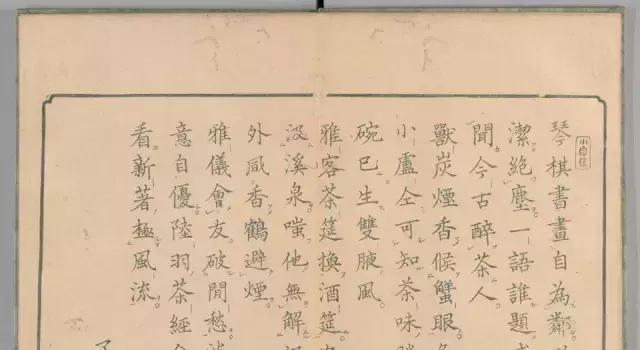 琴棋書畫自為鄰
潔絶塵一語誰題
聞今古醉茶人
獸炭煙香候蟹眼
小盧仝可知茶味
碗已生雙腋風
雅客茶筵換酒筵
汲溪泉嗤他無解
外風香鶴避煙
雅儀會友破閒愁
意自優陸羽茶經
看新著極風流